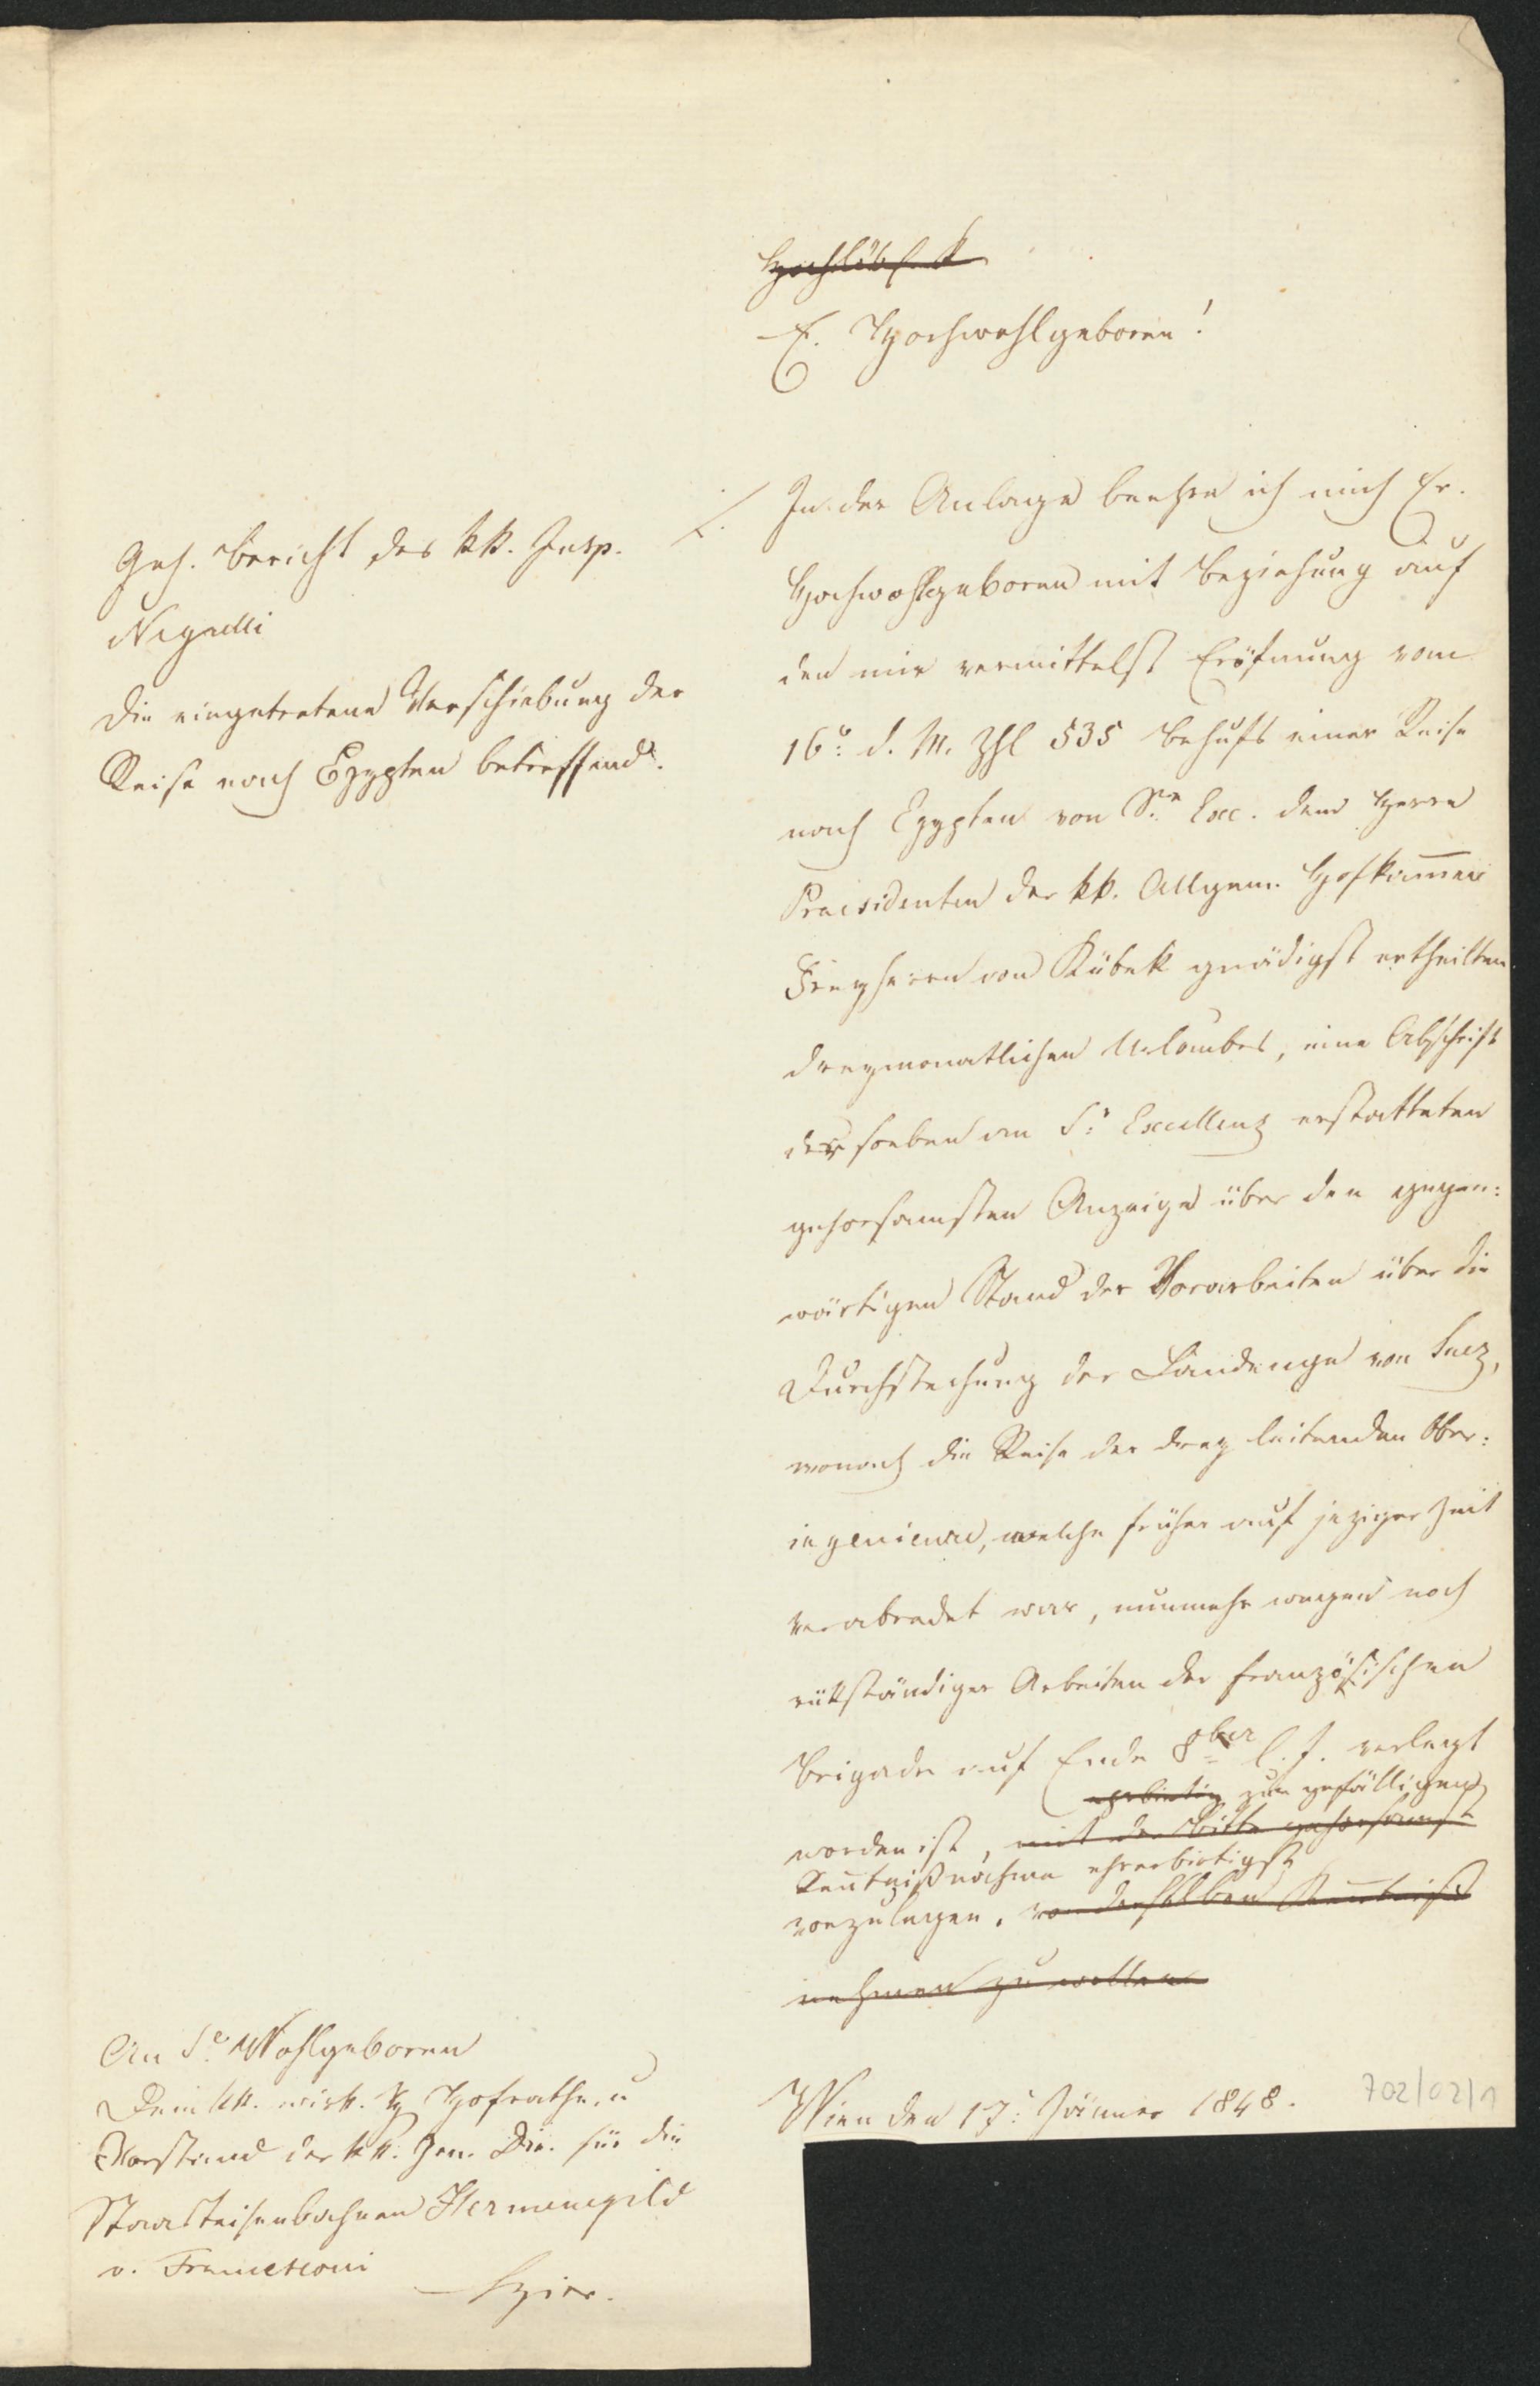 Hochlöbl. k
E. Hochwohlgeboren!
Geh. Bericht des kk. Insp.
Negrelli
die eingetretene Verschiebung der
Reise nach Egypten betreffend.
./. In der Anlage beehre ich mich Er.
Hochwohlgeboren mit Beziehung auf
den mir vermittelst Eröfnung vom
16n: d. M. Zhl 535 behufs einer Reise
nach Egypten von Sr. Exc. dem Herrn
Praesidenten der kk. Allgem. Hofkam̅er
Freyherrn von Kübek gnädigst ertheilten
dreymonatlichen Urlaubes, eine Abschrift
der soeben an Sr: Excellenz erstatteten
gehorsamsten Anzeige über den gegen:
wärtigen Stand der Vorarbeiten über die
Durchstechung der Landenge von Suez,
wonach die Reise der drey leitenden Ober:
ingenieure, welche früher auf jeziger Zeit
verabredet war, nunmehr wegen noch
rükständiger Arbeiten der französischen
Brigade auf Ende 8ber l. J. verlegt
zur gefälligen
worden ist, mit der Bitte gehorsamst
Kenntnißnahme ehrerbietigst
vorzulegen. von derselben Kenntniß
nehmen zu wollen
An Se. Wohlgeboren
Dem kk. wirk. Hofrathe, u
Vorstand der kk. Gen. Dir. für die
Staatseisenbahnen Hermenegild
v. Francesconi
Hier.
Wien den 17: Jänner 1848.
702/02/1